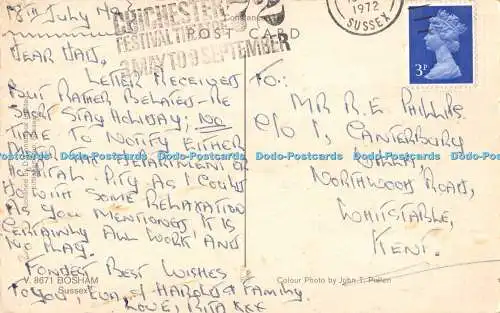 8th July
CHICHESTER '72
FESTIVAL TH
3 MAY TO 9 SEPTEMBER
POST CARD
1972
SUSSEX
3P
DEAR
LETTER RECEIVED
BUT RATHER BELATED - RE
SHORT STAY HOLIDAY; NO
TIME TO NOTIFY EITHER
DEPARTMENT OR
HOSPITAL - PITY AS I COULD
DO WITH SOME RELAXATION
AS YOU MENTIONED IT IS
CERTAINLY ALL WORK AND
NO PLAY.
FONDEST BEST WISHES
TO YOU, EVA, & HAROLD & FAMILY
LOVE, RITA XXX
TO:-
MR R.E. PHILLIPS
C/O 1, CANTERBURY
VILLA,
NORTHWOOD ROAD,
WHITSTABLE,
KENT.
V. 8671 BOSHAM
Sussex
Colour Photo by John T. Pullen
Dodo-Postcards Dodo-Postcards Dodo-Postcards Dodo-Postcards Dodo-Postcards